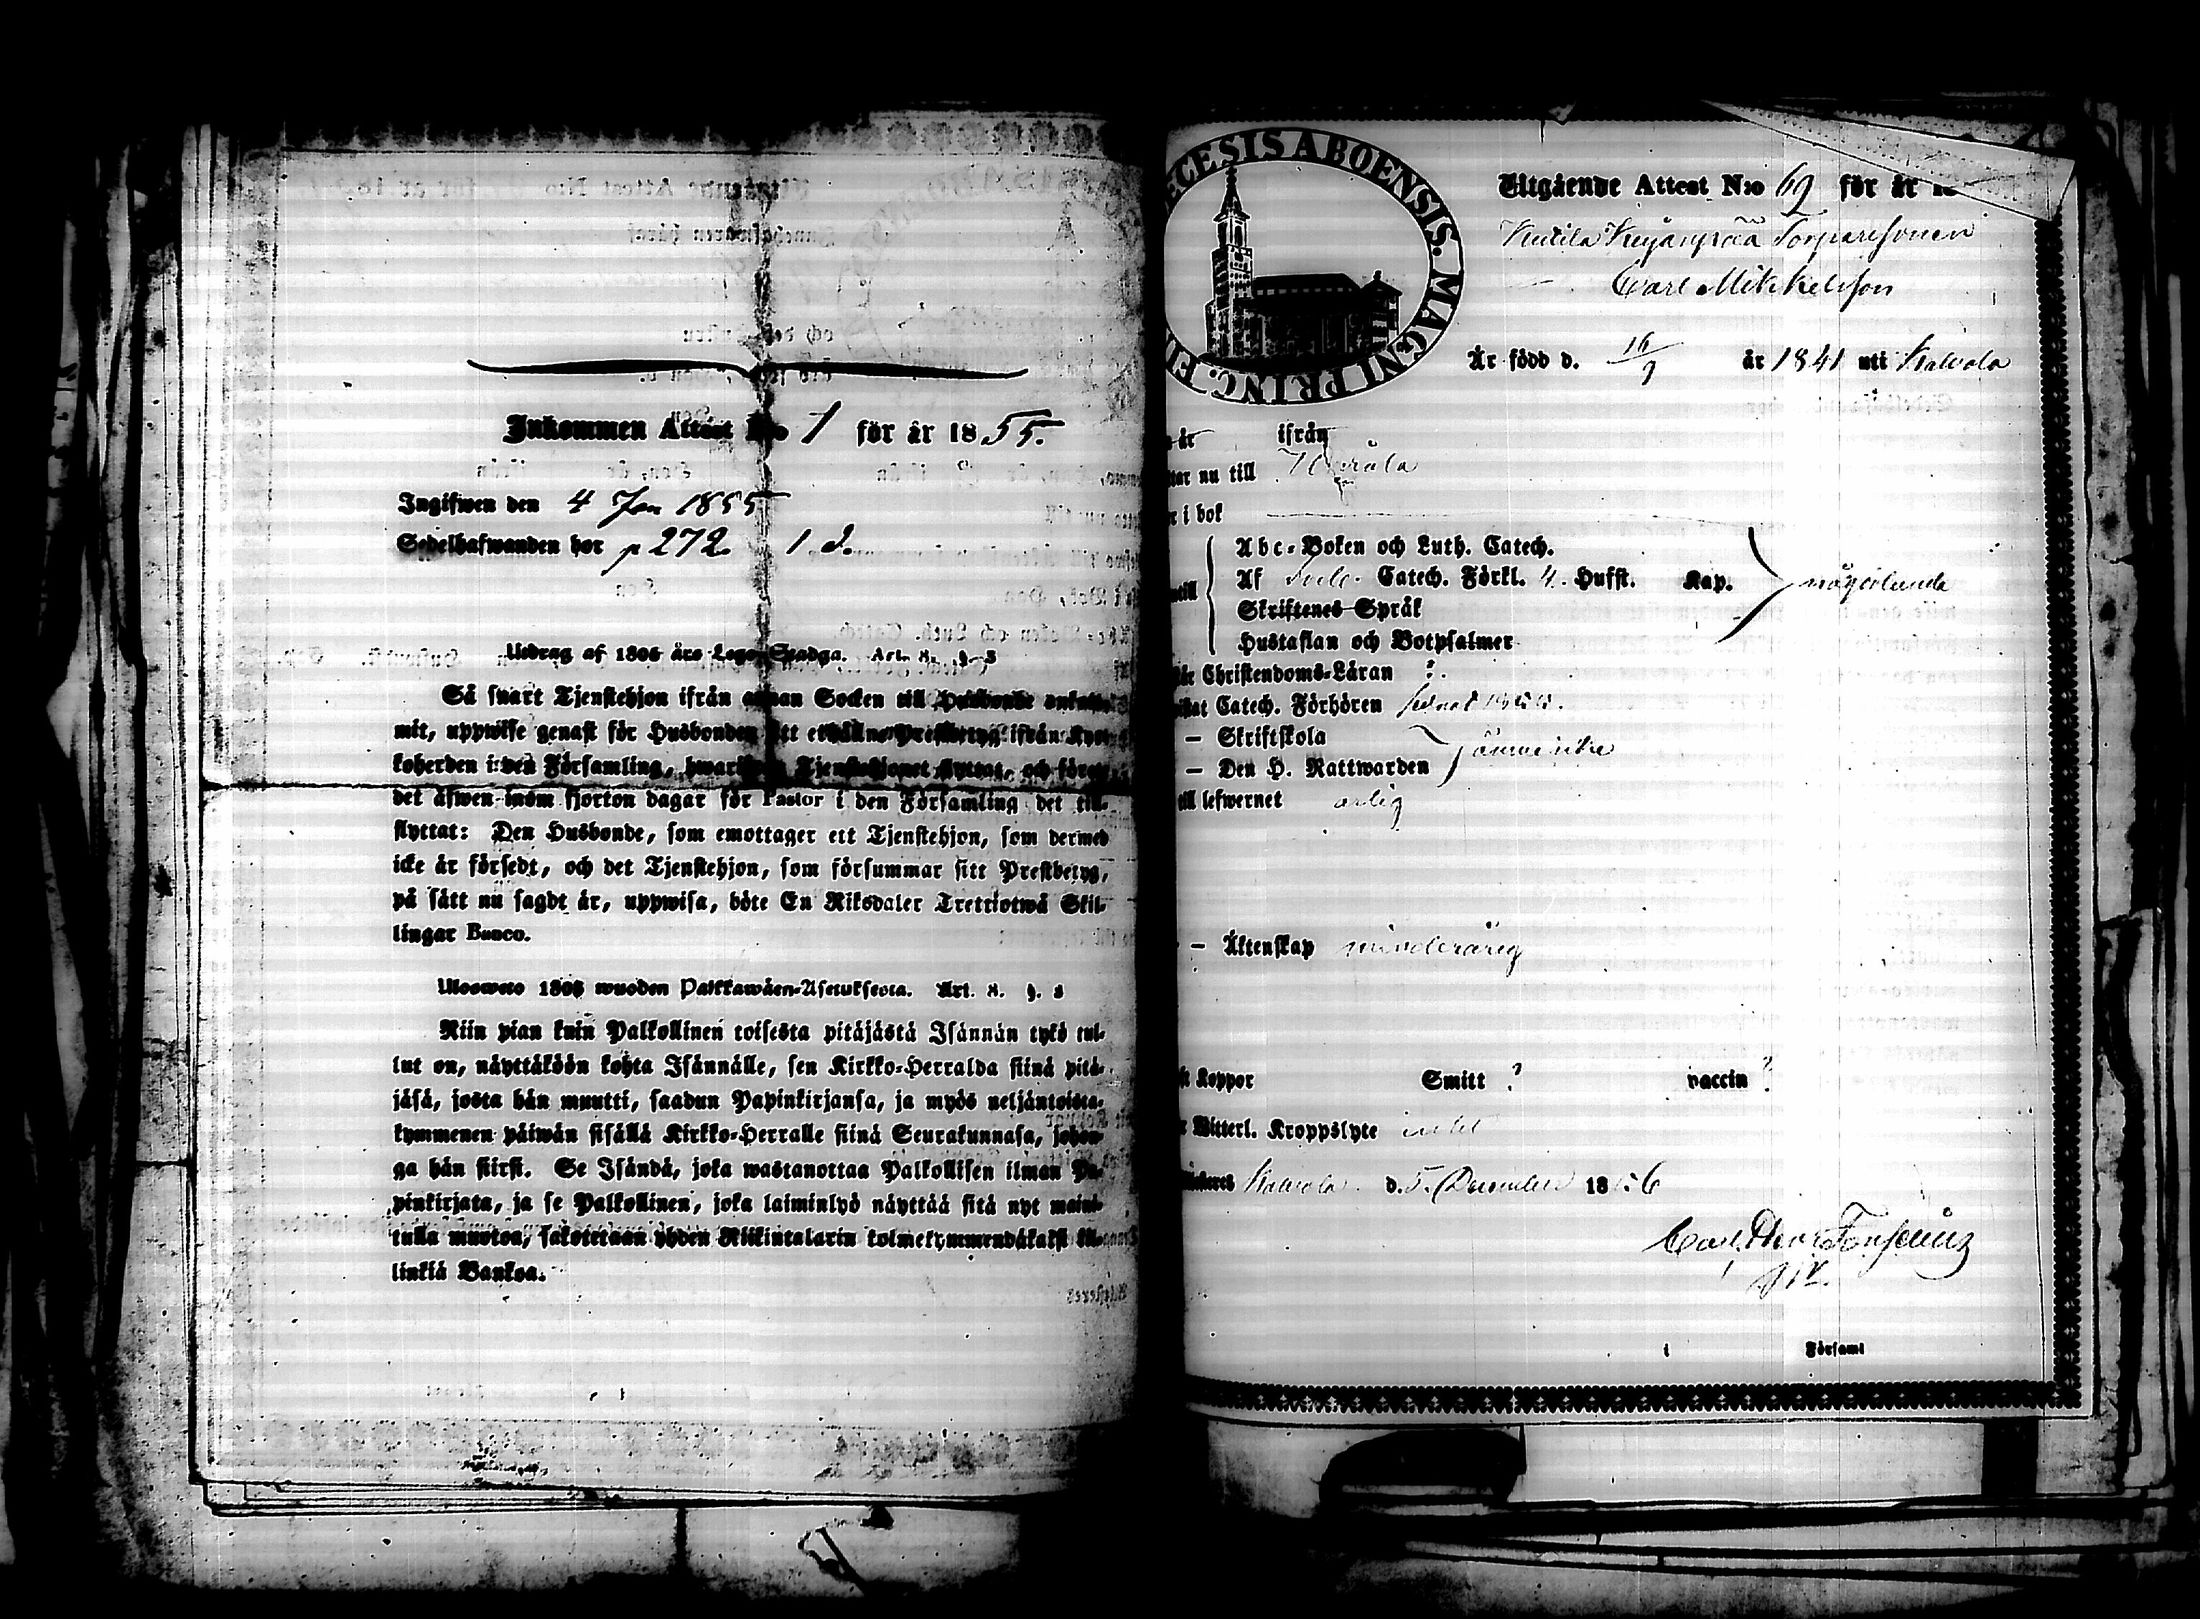 Inkommen Attest No 1 för år 1855.
Ingifwen den 4 Jan 1855
Sedelhafwanden bor p 272. 1 d.
Utdrag af 1805 års Lego-Stadga. Art. 8. §. 3
Så snart Tjenstehjon ifrån annan Socken till Husbonde ankom-
mit, uppwise genast för Husbonden sitt Prestbetyg ifrån Kyr-
koherden i den Församling, hwarifrån Tjenstehjonet flyttat, och före
det äfwen inom fjorton dagar för Pastor i den Församling det till-
flyttat: Den Husbonde, som emottager ett Tjenstehjon, som dermed
icke är försedt, och det Tjenstehjon, som försummar sitt Prestbetyg,
på sätt nu sagdt är, uppwisa, böte En Riksdaler Trettiotwå Skil-
lingar Banco.
Ulosweto 1805 wuoden Palkkawäen-Asetuksesta. Art. 8. §. 3
Niin pian kuin Palkollinen toisesta pitäjästä Isännän tykö tul-
lut on, näyttäköön kohta Isännälle, sen Kirkko-Herralda siinä pitä-
jäsä, josta hän muutti, saadun Papinkirjansa, ja myös neljäntoista-
kymmenen päiwän sisällä Kirkko-Herralle siinä Seurakunnasa, johon-
ga hän siirsi. Se Isändä, joka wastanottaa Palkollisen ilman Pa-
pinkirjata, ja se Palkollinen, joka laiminlyö näyttää sitä nyt maini-
tulla muotoa, sakotetaan yhden Riikintalarin kolmekymmendäkaksi kil-
linkiä Bankoa.
ECESIS ABOENSIS. MAGNI PRINC. FI
Utgående Attest N:o 69 för år 1
Torparesonen
Carl Mikkelsson
Är född d. 16/9 år 1841 uti Kalvola
är ifrån
tar nu till
r i bok
Abc-Boken och Luth. Catech.
Af Catech. Förkl. 4. Hufst. Kap. någorlunda
Skriftenes Språk
Hustaflan och Botpsalmer
Christendoms-Läran :
Catech. Förhören
— Skriftskola
— Den H. Nattwarden ännu icke
till lefwernet ärlig
— Äktenskap minderårig
Koppor Smitt ? vaccin ?
Witterl. Kroppslyte intet
Kalvola d. 5. December 1856
Carl
i Församl